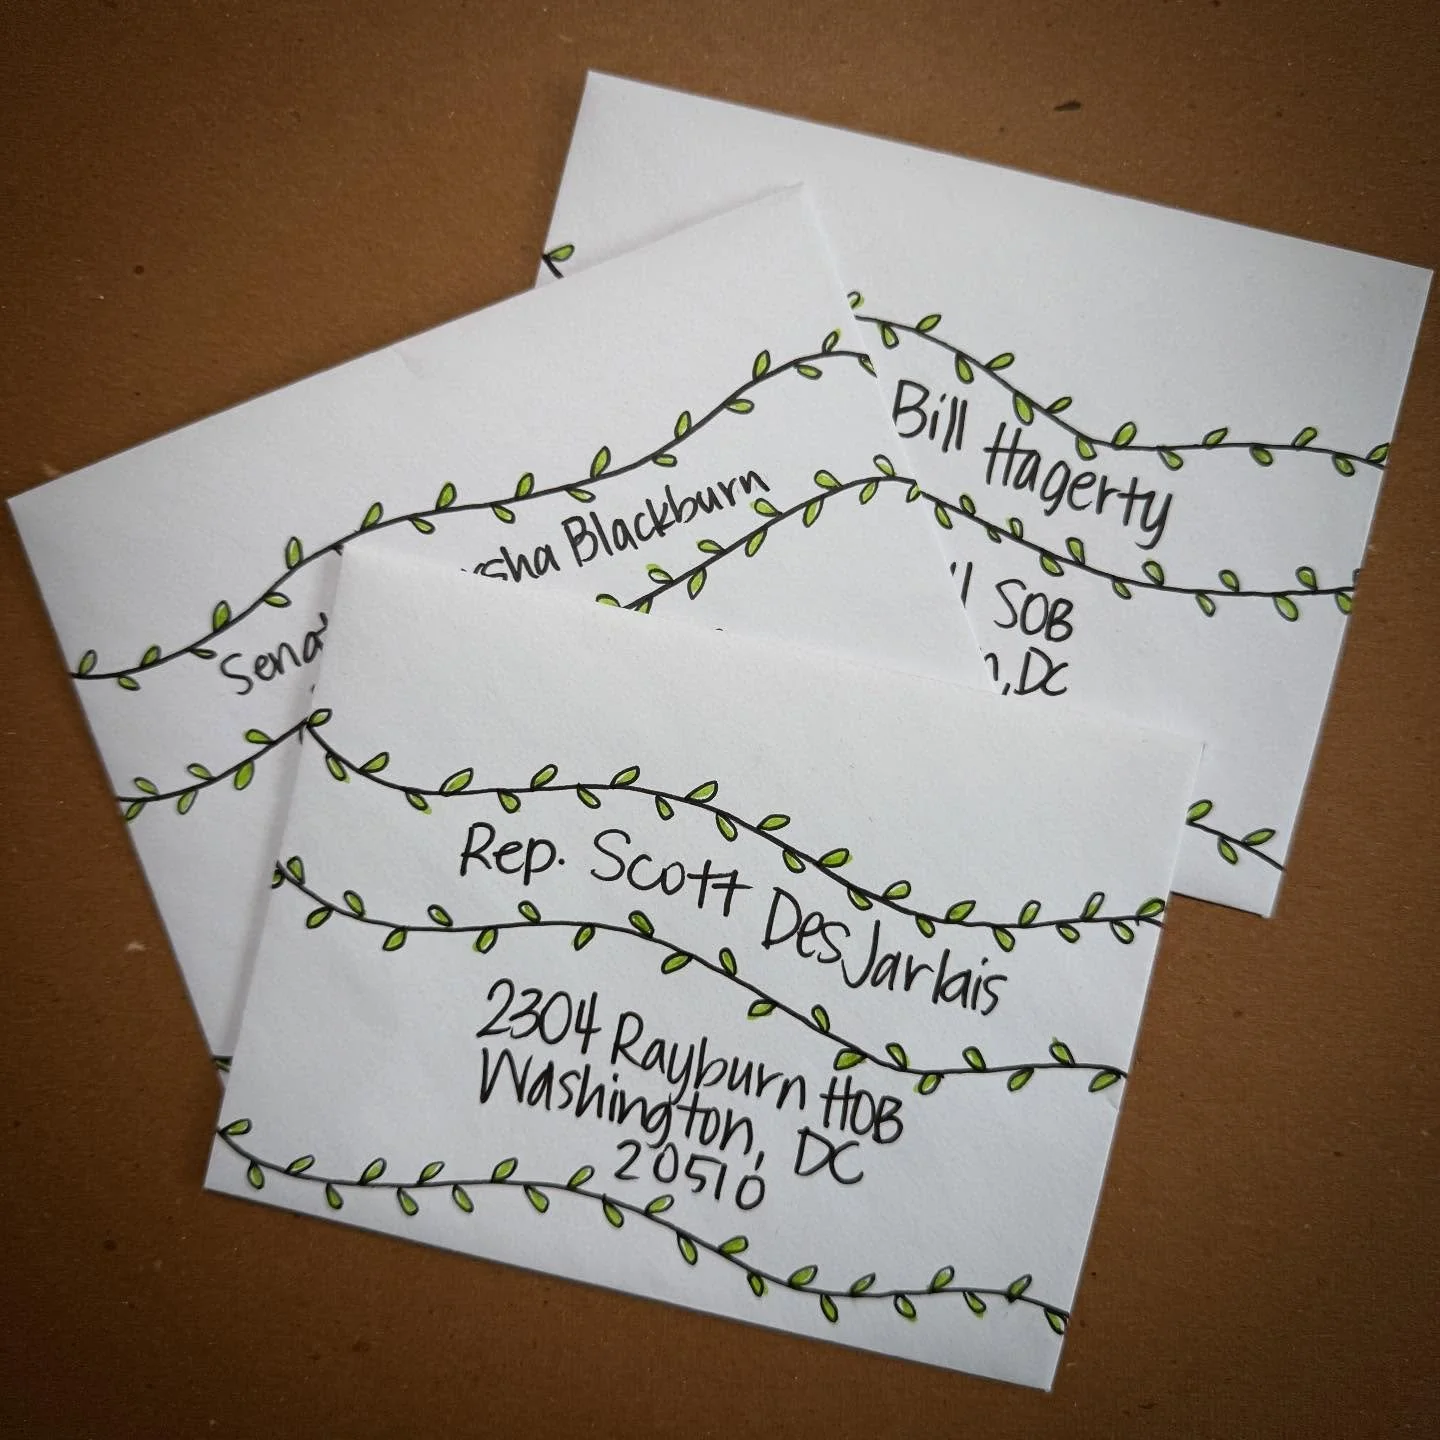 Bill Hagerty
SOB
DC
Blackburn
Rep. Scott DesJarlais
2304 Rayburn HOB
Washington, DC
20510